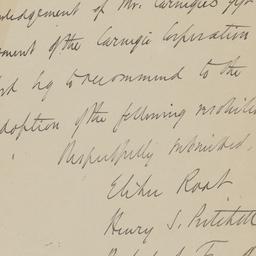 wledgement of Mr. Carnegie's gift
ment of the Carnegie Corporation
beg to recommend to the
doption of the following resolution
Respectfully submitted,
Elihu Root
Henry S. Pritchett